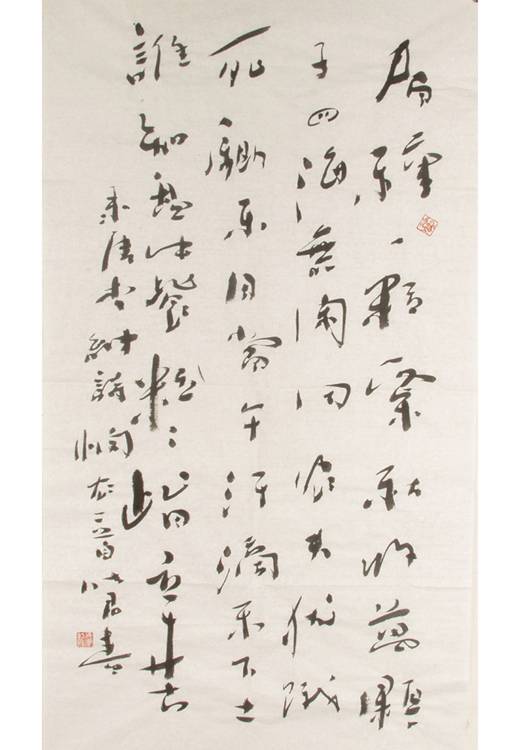 春種一顆粟秋收萬顆
子四海無閑田農夫猶餓
死鋤禾日當午汗滴禾下土
誰知盤中餐粒〻皆辛苦
唐李紳詩憫農二首 書